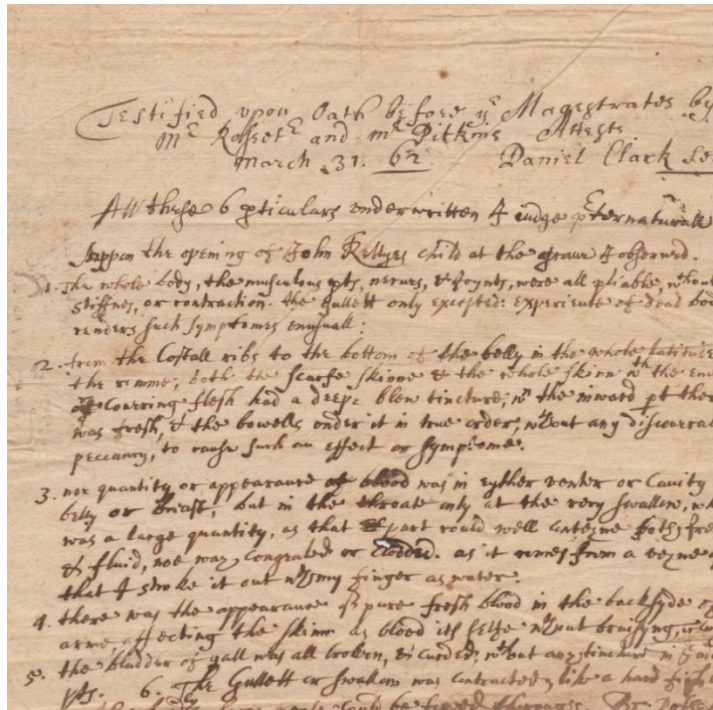 Testified upon Oath before yᵉ Magestrates by
Mʳ Rosseter and mʳ Pitkins Attests
March. 31. 62 Daniel Clark Se
All these 6 pticulars underwritten I iudge pʳternaturall
Vppon the opening of John Kellyes child at the graue I obserued.
1. The whole body, the musculous pts, nerues, & Joynts, were all pliable, wᵗʰout
stiffnes, or contraction. the gullett only excepted: experience of dead bod
renders such symptomes unusuall:
2. from the Costall ribs to the bottom of the belly in the whole latitude
the womme, both the scarfe skinne & the whole skinn wᵗʰ the
couering flesh had a deepe blew tincture; wⁿ the inward pt ther
was fresh, & the bowells under it in true order, wᵗʰout any discouera
peccancy, to cause such an effect or symptome.
3. noe quantity or appearance of blood was in eyther venter or Cauity
belly or breast, but in the throate only at the very swallow, wh
was a large quantity, as that part could well conteyne both fre
& fluid, noe way Congealed or Clodded. as it comes from a veyne
that I stroke it out wᵗʰ my finger as water.
4. there was the appearance of pure fresh blood in the backsyde of
arme affecting the skinn as blood its selfe wᵗʰout bruising,
5. the bladder of gall was all broken, & curded, wᵗʰout any tincture in
pts. 6. The Gullett or swallow was contracted, like a hard fish